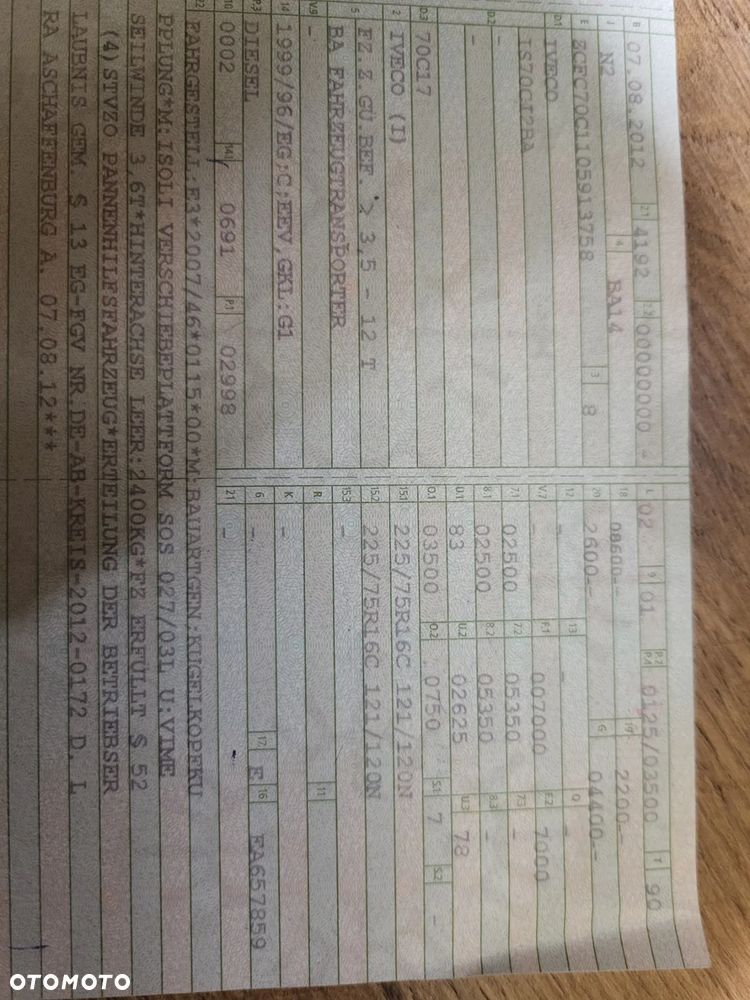 B 07.08.2012 2.1 4192 2.2 00000000 -
J N2 4 BA14
E ZCFC70C1105913758 3 8
D.1 IVECO
IS70CI2BA
D.2 -
-
D.3 70C17
2 IVECO (I)
5 FZ.Z.GÜ.BEF. > 3,5 - 12 T
BA FAHRZEUGTRANSPORTER
V.9 -
14 1999/96/EG;C;EEV,GKL:G1
P.3 DIESEL
10 0002 14.1 0691 P.1 02998
L 02 9 01 P.2 P.4 0125/03500 T 90
18 08600-- 19 2200--
20 2600-- G 04400--
12 - 13 - Q -
V.7 - F.1 007000 F.2 7000
7.1 02500 7.2 05350 7.3 -
8.1 02500 8.2 05350 8.3 -
U.1 83 U.2 02625 U.3 78
O.1 03500 O.2 0750 S.1 7 S.2 -
15.1 225/75R16C 121/120N
15.2 225/75R16C 121/120N
15.3 -
R - 11
K -
6 - 17 E 16 FA657859
21 -
22 FAHRGESTELL:E3*2007/46*0115*00*M:BAUARTGEN.KUGELKOPFKU
PPLUNG*M:ISOLI VERSCHIEBEPLATTFORM SOS 027/03L U:VIME
SEILWINDE 3,6T*HINTERACHSE LEER:2400KG*FZ ERFÜLLT § 52
(4)STVZO PANNENHILFSFAHRZEUG*ERTEILUNG DER BETRIEBSER
LAUBNIS GEM § 13 EG-FGV NR.DE-AB-KREIS-2012-0172 D. L
RA ASCHAFFENBURG A. 07.08.12***
OTOMOTO